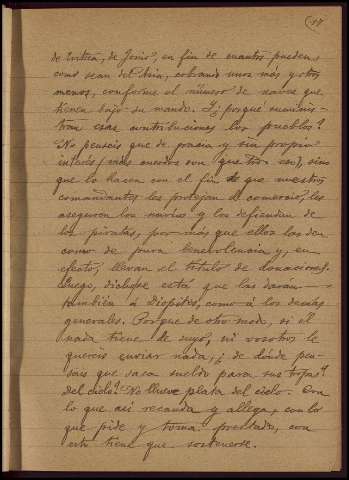 de Eritrea, de Jonio, en fin de cuantos pueden,
como sean del Asia, cobrando unos más y otros
menos, conforme el número de naves que
tienen bajo su mando. Y ¿porqué suminis-
tran esas contribuciones los pueblos?
No penseis que de gracia y sin propio
interés,
sino
que lo hacen con el fin de que nuestros
comandantes les protejan el comercio, les
aseguren los navios y los defiendan de
los piratas, por más que ellos las den
como de pura benevolencia y, en
efecto, llevan el título de donaciones.
Luego, dicho se está que las daran
también a Diopites, como á los demás
generales. Porque de otro modo, si él
nada tiene de suyo, ni vosotros le
quereis enviar nada, ¿de dónde pen-
sais que saca sueldo para sus tropas?
Del cielo? No llueve plata del cielo. Con
lo que así recauda y allega, con lo
que pide y toma prestado, con
esto tiene que sostenerse.